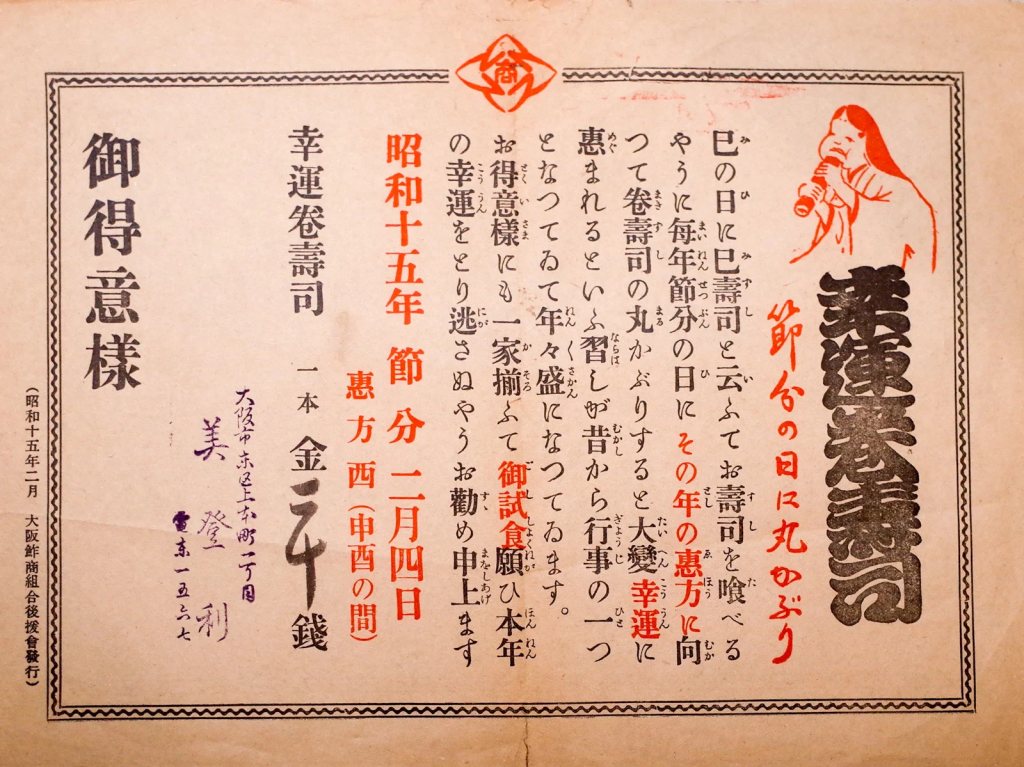 商
幸運卷壽司
節分の日に丸かぶり
巳の日に巳壽司と云ふてお壽司を喰べる
やうに每年節分の日にその年の惠方に向
つて卷壽司の丸かぶりすると大變幸運に
惠まれるといふ習しが昔から行事の一つ
となつてゐて年々盛になつてゐます。
お得意樣にも一家揃ふて御試食願ひ本年
の幸運をとり逃さぬやうお勸め申上ます
昭和十五年 節分 二月四日
惠方 西(申酉の間)
幸運卷壽司 一本 金 錢
大阪市東区上本町一丁目
美登利
東一五六七
御得意樣
(昭和十五年二月 大阪鮓商組合後援會發行)